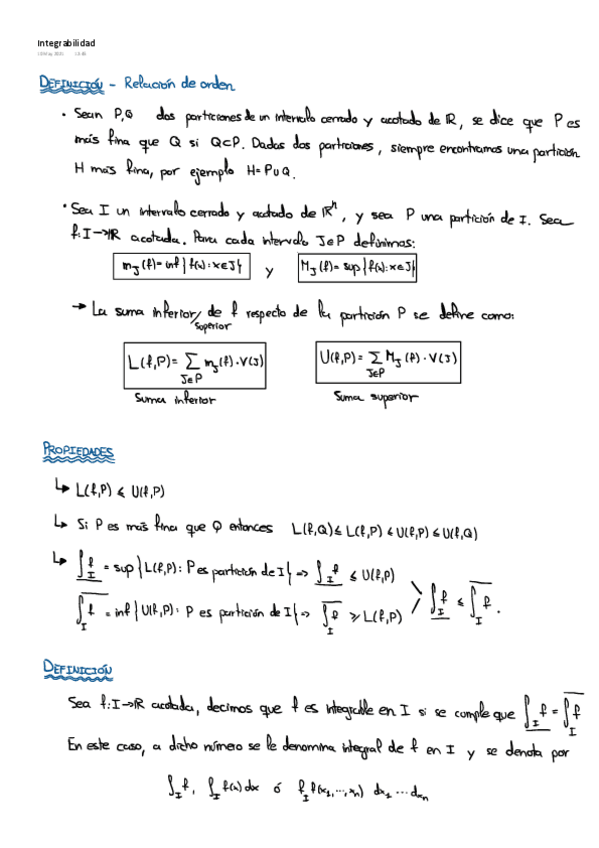 Integrabilidad
DEFINICIÓN - Relación de orden
• Sean P,Q dos particiones de un intervalo cerrado y acotado de ℝ, se dice que P es
más fina que Q si Q⊂P. Dadas dos particiones, siempre encontramos una partición
H más fina, por ejemplo H=P∪Q.
• Sea I un intervalo cerrado y acotado de ℝⁿ, y sea P una partición de I. Sea
f:I→ℝ acotada. Para cada intervalo J∈P definimos:
m_J(f)=inf{f(x):x∈J} y M_J(f)=sup{f(x):x∈J}
→ La suma inferior/superior de f respecto de la partición P se define como:
L(f,P)= ∑_{J∈P} m_J(f)·V(J) U(f,P)= ∑_{J∈P} M_J(f)·V(J)
Suma inferior Suma superior
PROPIEDADES
↳ L(f,P) ≤ U(f,P)
↳ Si P es más fina que Q entonces L(f,Q) ≤ L(f,P) ≤ U(f,P) ≤ U(f,Q)
↳ \underline{∫_I f} = sup{L(f,P): P es partición de I} => \underline{∫_I f} ≤ U(f,P)
\overline{∫_I f} = inf{U(f,P): P es partición de I} => \overline{∫_I f} ≥ L(f,P) > \underline{∫_I f} ≤ \overline{∫_I f}.
DEFINICIÓN
Sea f:I→ℝ acotada, decimos que f es integrable en I si se cumple que \underline{∫_I f} = \overline{∫_I f}
En este caso, a dicho número se le denomina integral de f en I y se denota por
∫_I f, ∫_I f(x)dx ó ∫_I f(x₁,...,xₙ) dx₁...dxₙ